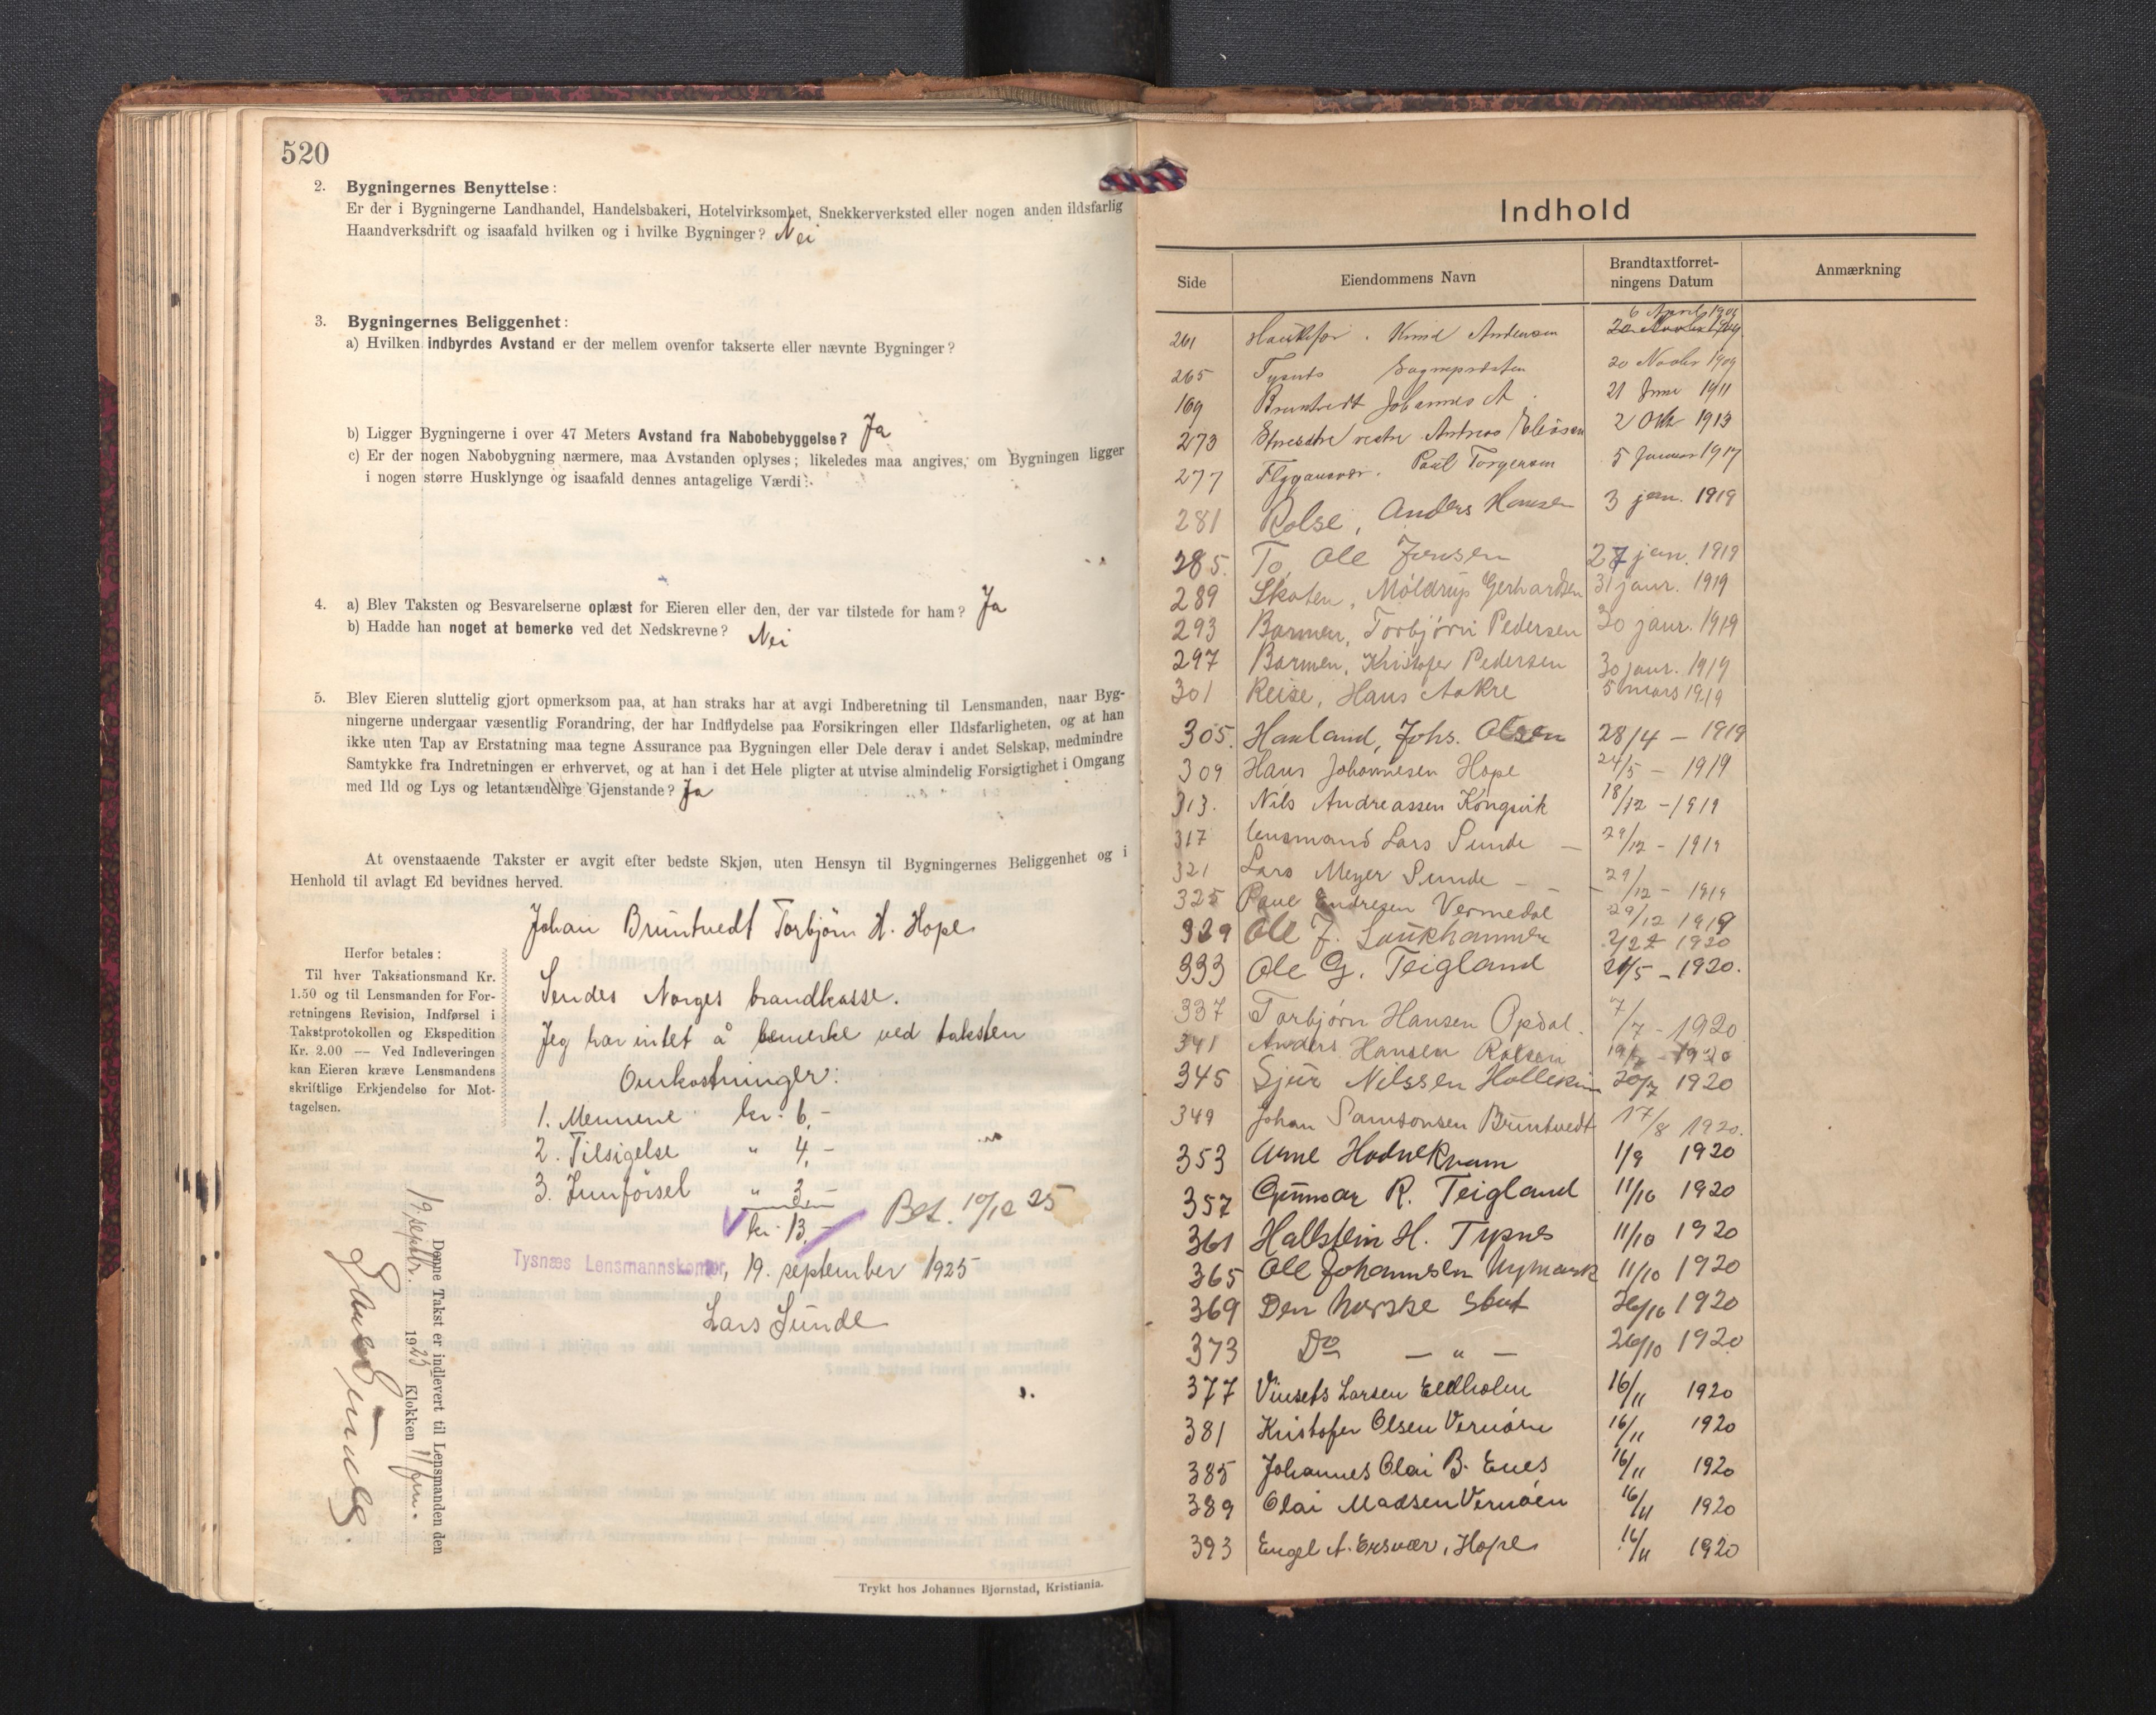 520
2. Bygningernes Benyttelse:
Er der i Bygningerne Landhandel, Handelsbakeri, Hotelvirksomhet, Snekkerverksted eller nogen anden ildsfarlig
Haandverksdrift og isaafald hvilken og i hvilke Bygninger? Nei
3. Bygningernes Beliggenhet:
a) Hvilken indbyrdes Avstand er der mellem ovenfor takserte eller nævnte Bygninger?
b) Ligger Bygningerne i over 47 Meters Avstand fra Nabobebyggelse? Ja
c) Er der nogen Nabobygning nærmere, maa Avstanden oplyses; likeledes maa angives, om Bygningen ligger
i nogen større Husklynge og isaafald dennes antagelige Værdi:
4. a) Blev Taksten og Besvarelserne oplæst for Eieren eller den, der var tilstede for ham? Ja
b) Hadde han noget at bemerke ved det Nedskrevne? Nei
5. Blev Eieren sluttelig gjort opmerksom paa, at han straks har at avgi Indberetning til Lensmanden, naar Byg-
ningerne undergaar væsentlig Forandring, der har Indflydelse paa Forsikringen eller Ildsfarligheten, og at han
ikke uten Tap av Erstatning maa tegne Assurance paa Bygningen eller Dele derav i andet Selskap, medmindre
Samtykke fra Indretningen er erhvervet, og at han i det Hele pligter at utvise almindelig Forsigtighet i Omgang
med Ild og Lys og letantændelige Gjenstande? Ja
At ovenstaaende Takster er avgit efter bedste Skjøn, uten Hensyn til Bygningernes Beliggenhet og i
Henhold til avlagt Ed bevidnes herved.
Johan Bruntvedt Torbjörn H. Hope
Herfor betales:
Til hver Taksationsmand Kr.
1.50 og til Lensmanden for For-
retningens Revision, Indførsel i
Takstprotokollen og Ekspedition
Kr. 2.00 — Ved Indleveringen
kan Eieren kræve Lensmandens
skriftlige Erkjendelse for Mot-
tagelsen.
Sendes Norges brandkasse.
Jeg har intet å bemerke ved taksten
Omkostninger:
1. Mennene kr. 6,-
2. Tilsigelse " 4,-
3. Innförsel " 3,-
kr. 13,-
Bet. 10/12 25
Tysnæs Lensmannskontor, 19. september 1925
Lars Sunde
Denne Takst er indlevert til Lensmanden den
19 septbr. 1925 Klokken 11 fm.
Lars Sunde
Trykt hos Johannes Bjørnstad, Kristiania.
Indhold
Side Eiendommens Navn Brandtaxtforret-
ningens Datum Anmærkning
6 April 1909
261 Knud Andersen
265 Tysnes 20 Novbr 1909
169 Bruntvedt Johannes A. 21 Juni 1911
273 vestre Andreas 2 Okt 1913
277 Flygansvær. Paul Torgersen 5 Januar 1917
281 Rolse, Anders Hansen 3 jan. 1919
285. To, Ole Jensen 27 jan. 1919
289 Skaten, Möldrup Gerhardsen 31 janr. 1919
293 Barmen, Torbjörn Pedersen 30 janr. 1919
297 Barmen, Kristofer Pedersen 30 janr. 1919
301 Reise, Hans Aakre 5 mars 1919
305. Hauland, Johs. Olsen 28/4 - 1919
309 Hans Johannesen Hope 24/5 - 1919
313. Nils Andreassen Kongsvik 18/12 - 1919
317 Lensmand Lars Sunde — 29/12 - 1919
321 Lars Meyer Sunde - - - 29/12 - 1919
325 Paul Endresen Vermedal 29/12 1919
329 Ole J. Laukhammer 1920
333 Ole G. Teigland 21/5 - 1920.
337 Torbjörn Hansen Opdal. 7/7 - 1920
341 Anders Hansen Rolsen 1920
345 Sjur Nilssen Hollekim 20/7 1920
349 Johan Samsonsen Bruntvedt 17/8 1920.
353 Arne Hodnekvam 1/9 1920
357 Gunnar R. Teigland 11/10 1920
361 Hallstein H. Tysnes 11/10 1920
365 Ole Johannesen Nymark 11/10 1920
369 Den norske Stat 26/10 1920
373 Do — " — 26/10 1920
377 Vinsets Larsen Eldholm 16/11 1920
381 Kristofer Olsen Vernöen 16/11 1920
385 Johannes Olai B. Enes 16/11 1920
389 Olai Madsen Vernöen 16/11 1920
393 Engel A. Ersvær, Hope 16/11 1920